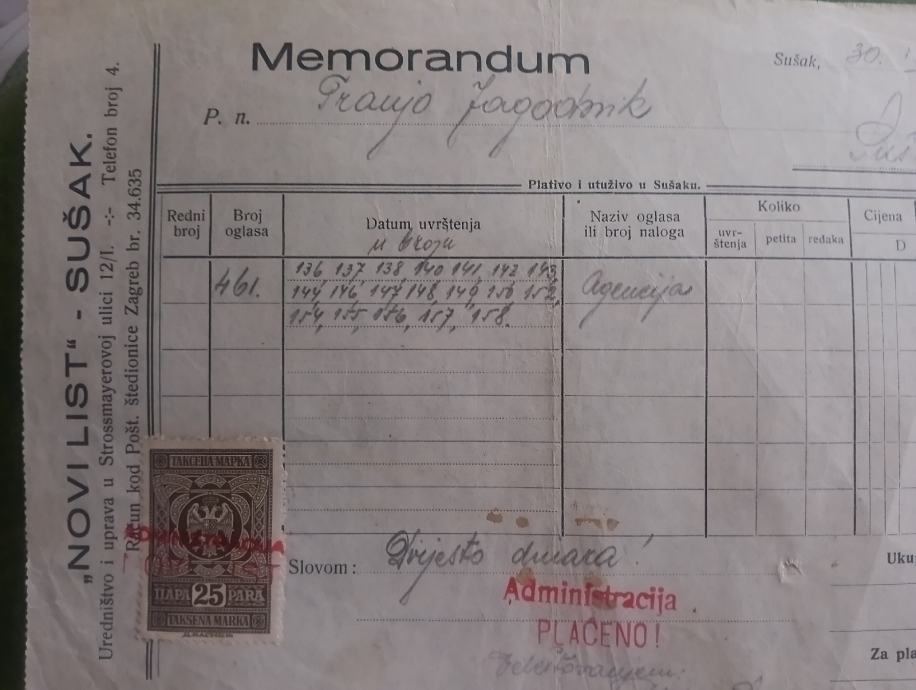 „NOVI LIST“ - SUŠAK.
Uredništvo i uprava u Strossmayerovoj ulici 12/I. -:- Telefon broj 4.
Račun kod Pošt. štedionice Zagreb br. 34.635
Memorandum
Sušak, 30.
P. n. Franjo Jagodnik
Plativo i utuživo u Sušaku.
Redni broj
Broj oglasa
Datum uvrštenja
u broju
Naziv oglasa ili broj naloga
Koliko
uvr-štenja
petita
redaka
Cijena
D
461.
136, 137, 138, 140, 141, 142, 143,
144, 146, 147, 148, 149, 150, 152,
154, 155, 156, 157, 158.
Agencija
ТАКСЕНА МАРКА
ПАРА 25 PARA
TAKSENA MARKA
ADMINISTRACIJA
Slovom: Dvijesto dinara!
Uku
Administracija
PLAĆENO!
Za pla